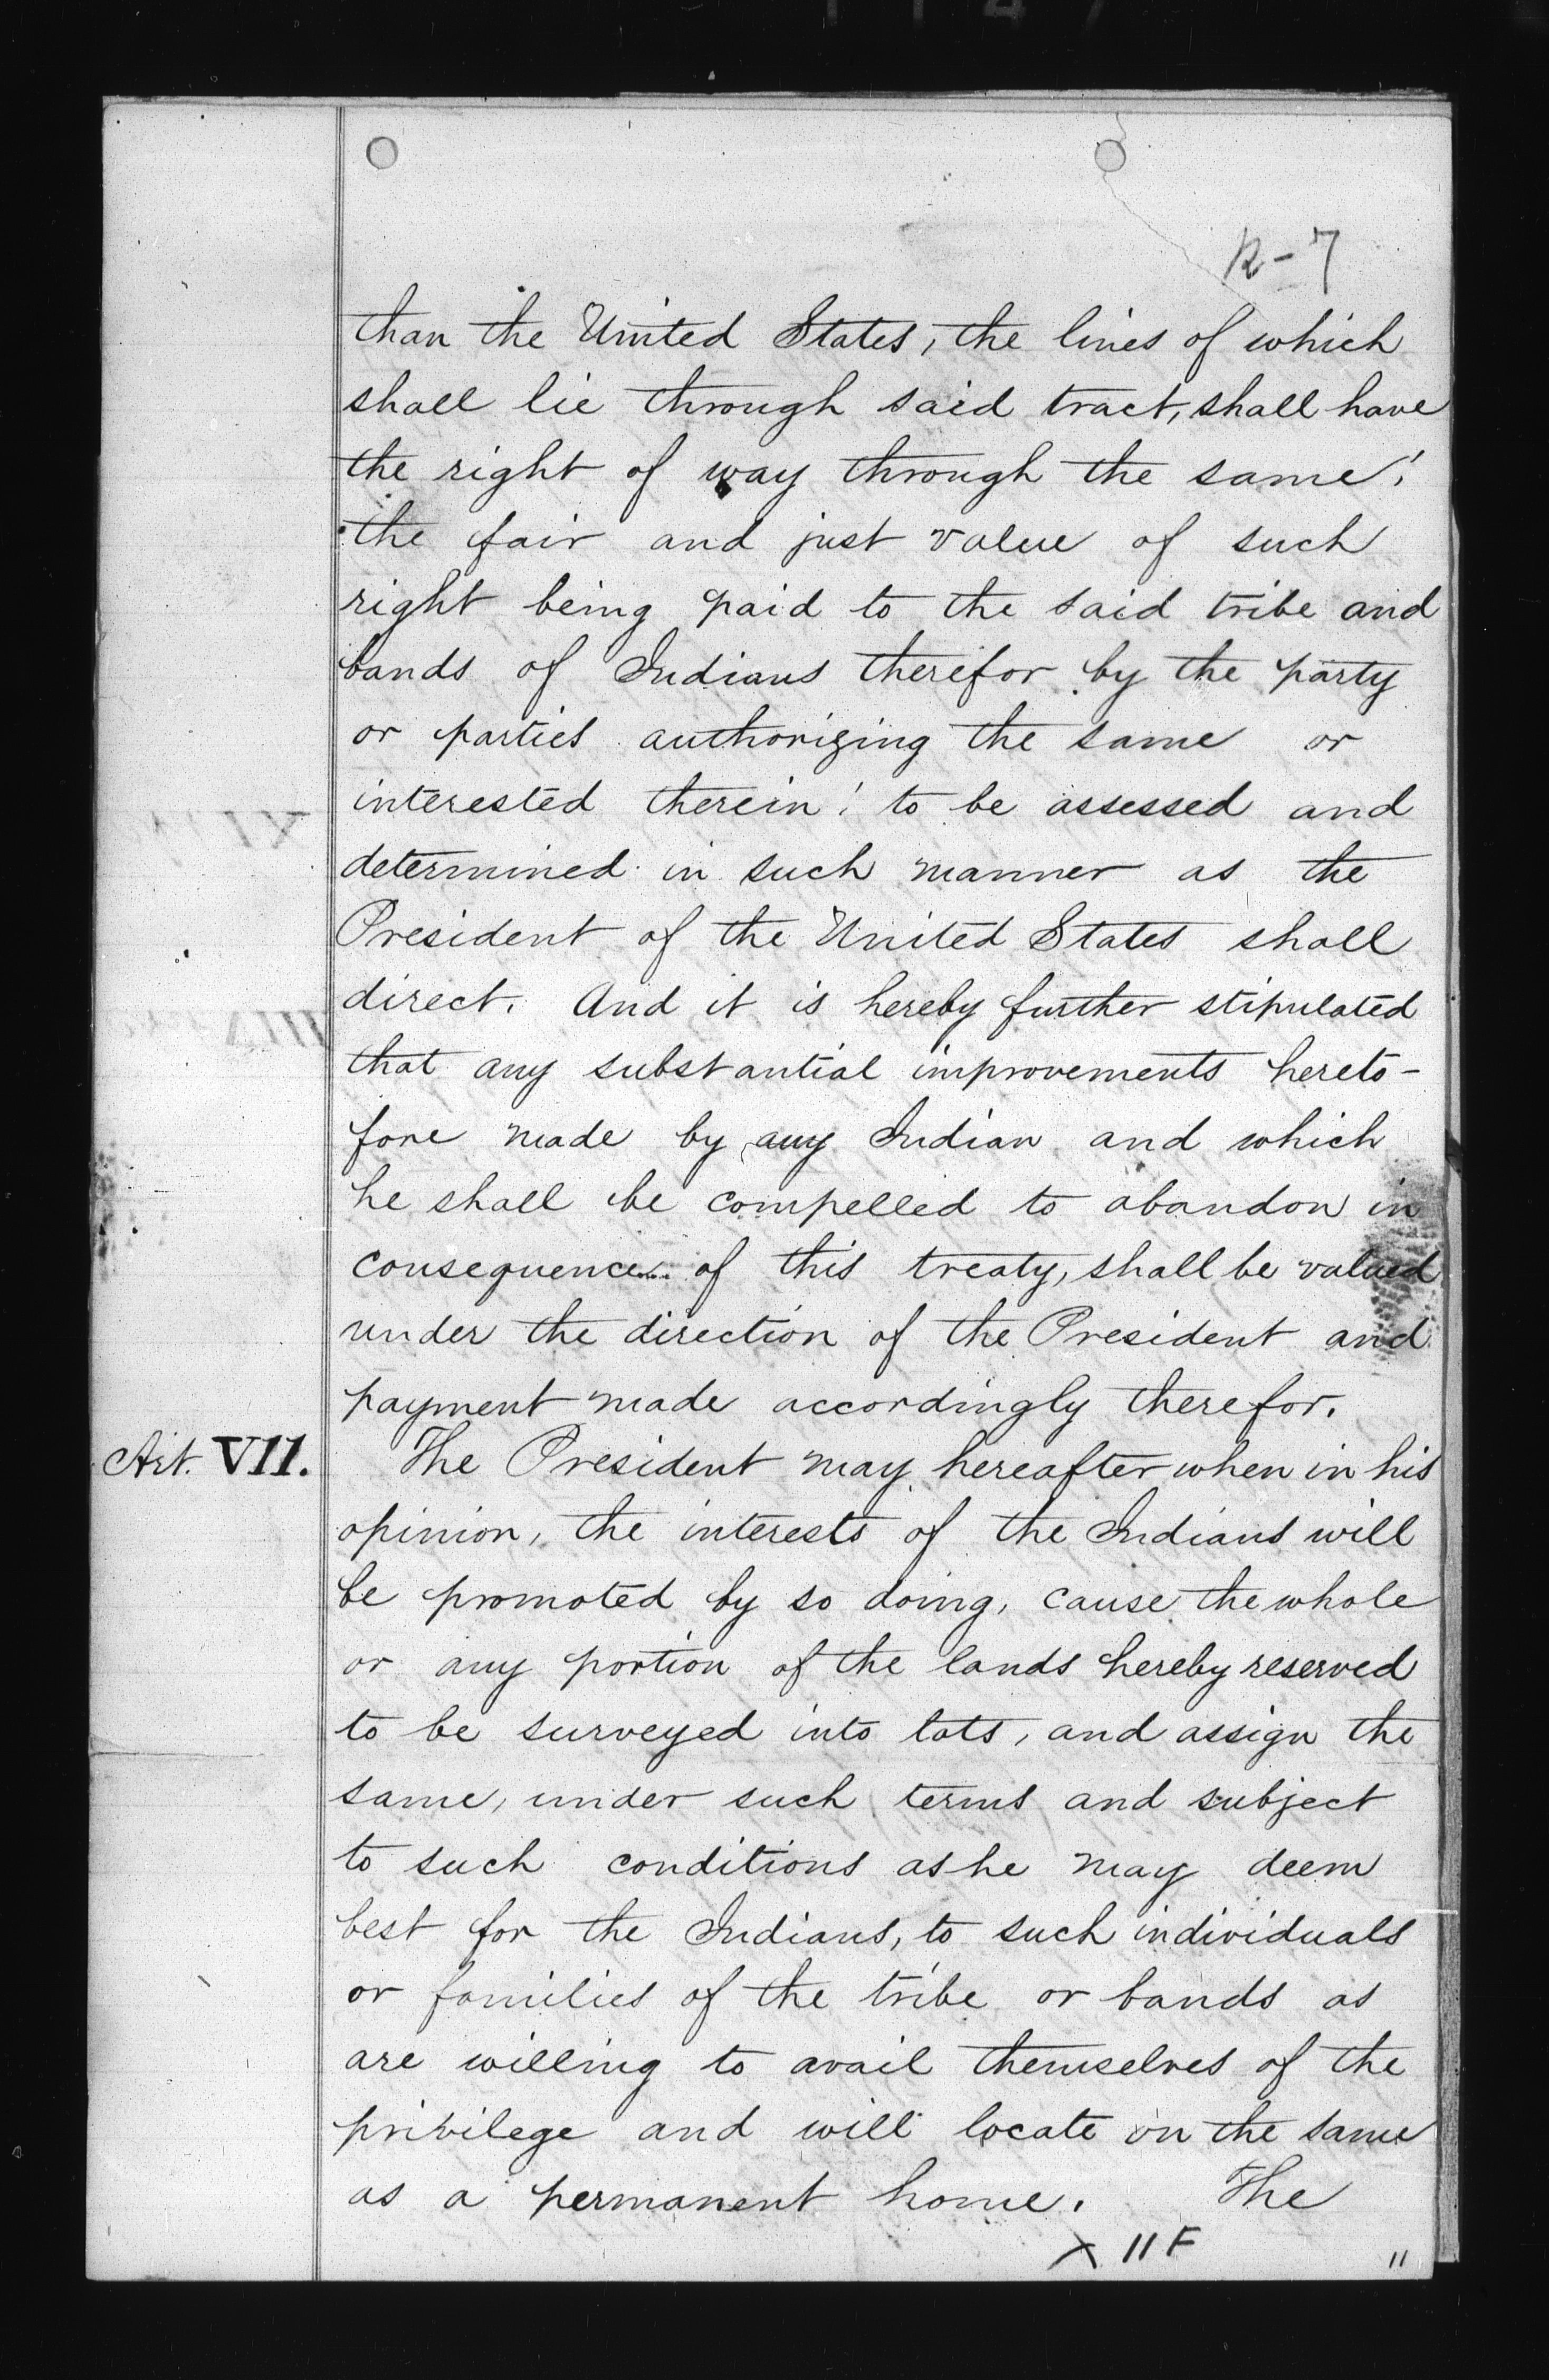 R-7
than the United States, the lines of which
shall lie through said tract, shall have
the right of way through the same;
the fair and just value of such
right being paid to the said tribe and
bands of Indians therefor by the party
or parties authorizing the same or
interested therein; to be assessed and
determined in such manner as the
President of the United States shall
direct. And it is hereby further stipulated
that any substantial improvements hereto-
fore made by any Indian and which
he shall be compelled to abandon in
consequence of this treaty, shall be valued
under the direction of the President and
payment made accordingly therefor.
Art. VII. The President may hereafter when in his
opinion, the interests of the Indians will
be promoted by so doing, cause the whole
or any portion of the lands hereby reserved
to be surveyed into lots, and assign the
same, under such terms and subject
to such conditions as he may deem
best for the Indians, to such individuals
or families of the tribe or bands as
are willing to avail themselves of the
privilege and will locate on the same
as a permanent home. The
X 11 F
11